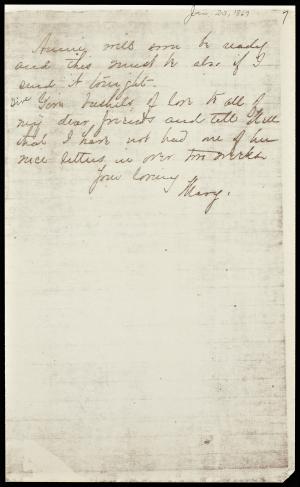 Jan 23, 1869
7
Annie will soon be ready
and this must be also if I
send it tonight.
Give bushels of love to all of
my dear friends and tell Nell
that I have not had one of her
nice letters in over two weeks.
Your loving
Mary.